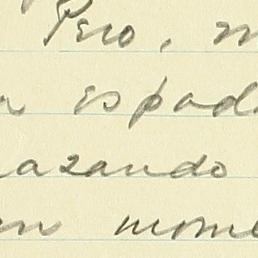 Pero, m
a espad
azando
en mome